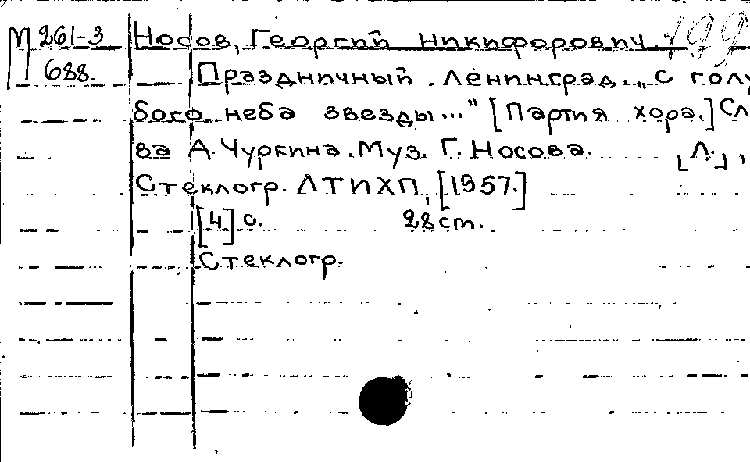 М 261-3 Носов, Георгий Никифорович. 199
688. Праздничный Ленинград. „С голу
бого неба звезды..." [Партия хора.] Сл
ва А. Чуркина. Муз. Г. Носова. [Л.],
Стеклогр. ЛТИХП, [1957.]
[4] с. 28 cm.
Стеклогр.